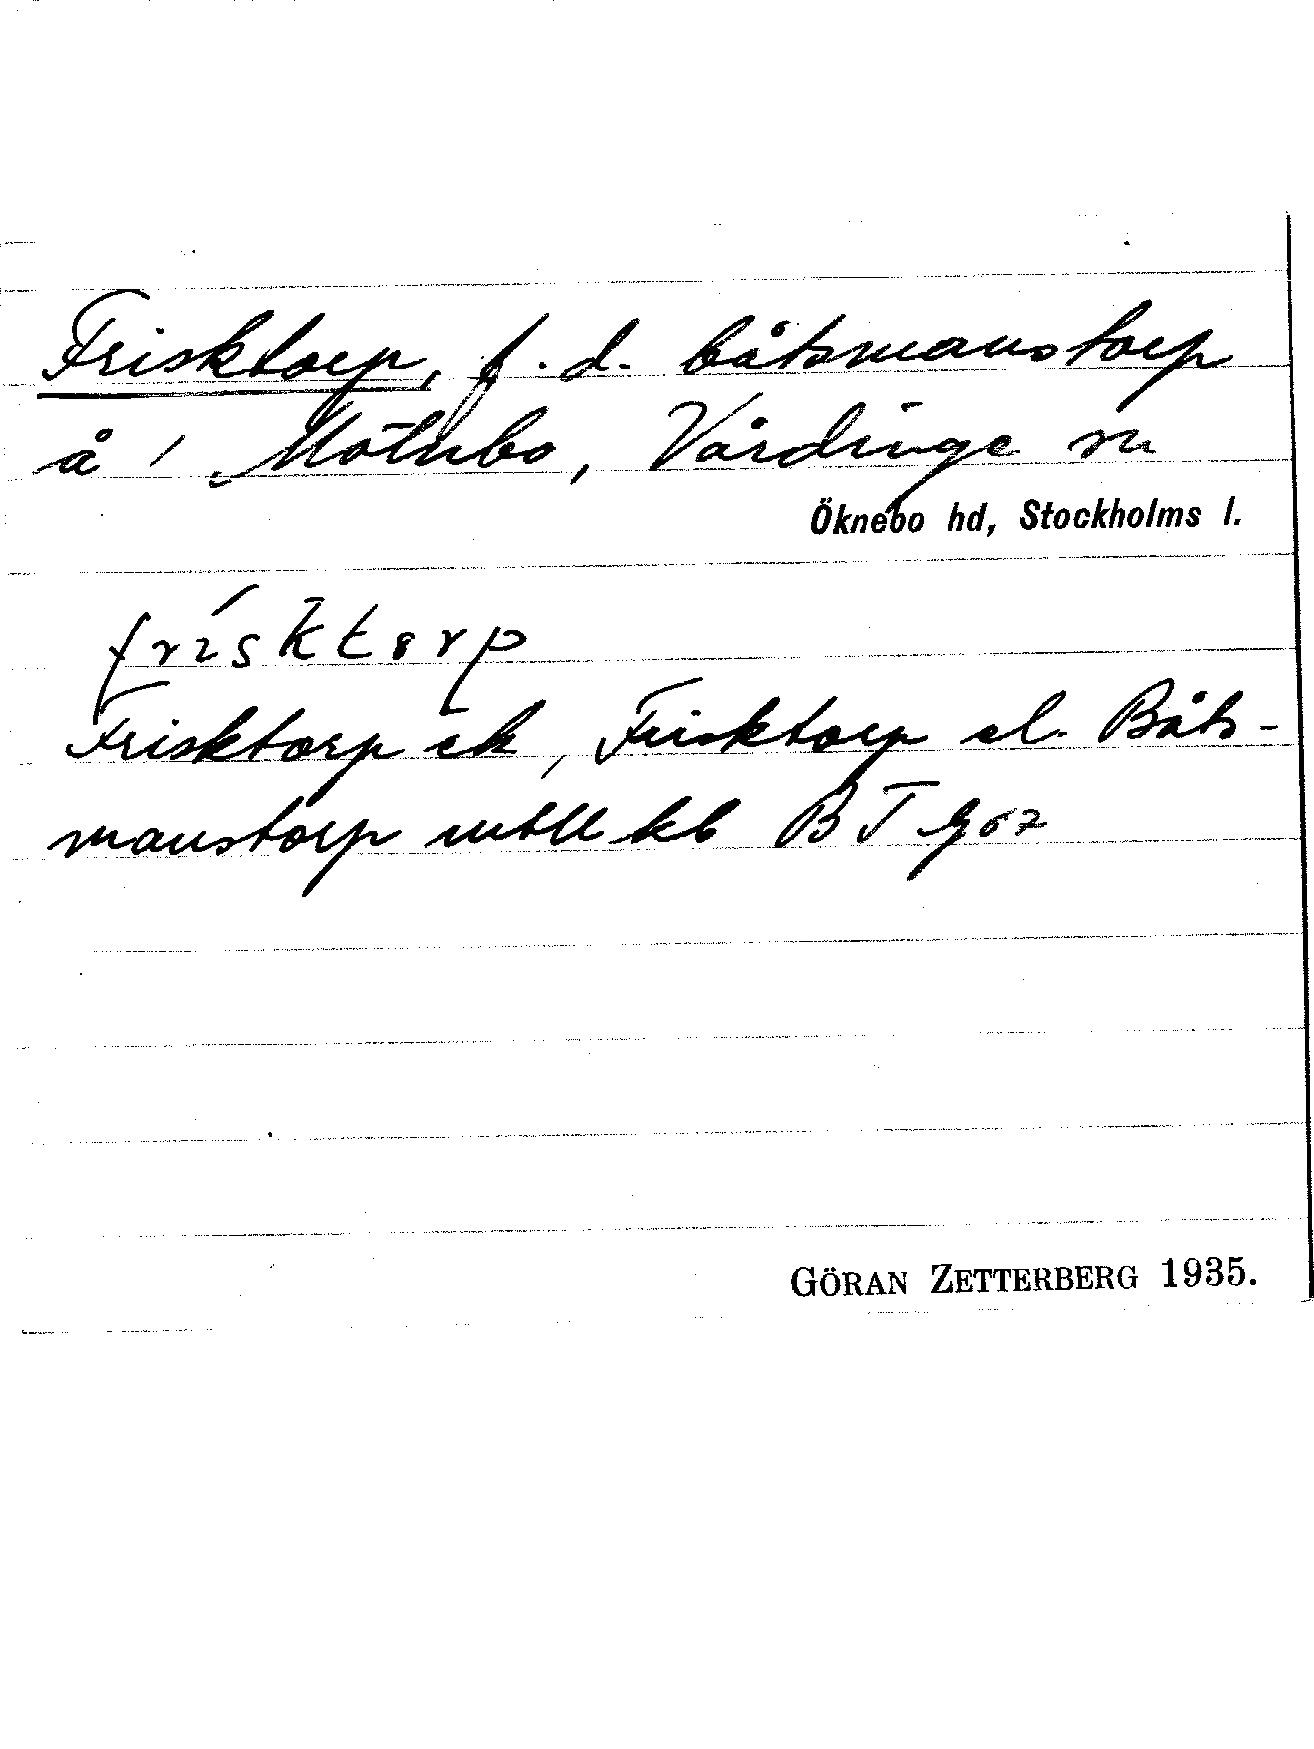 Frisktorp, f.d. båtsmanstorp
å 1 Mölnbo, Vårdinge sn
Öknebo hd, Stockholms l.
frisktorp
Frisktorp ek, Frisktorp el. Båts-
manstorp kb BT
GÖRAN ZETTERBERG 1935.